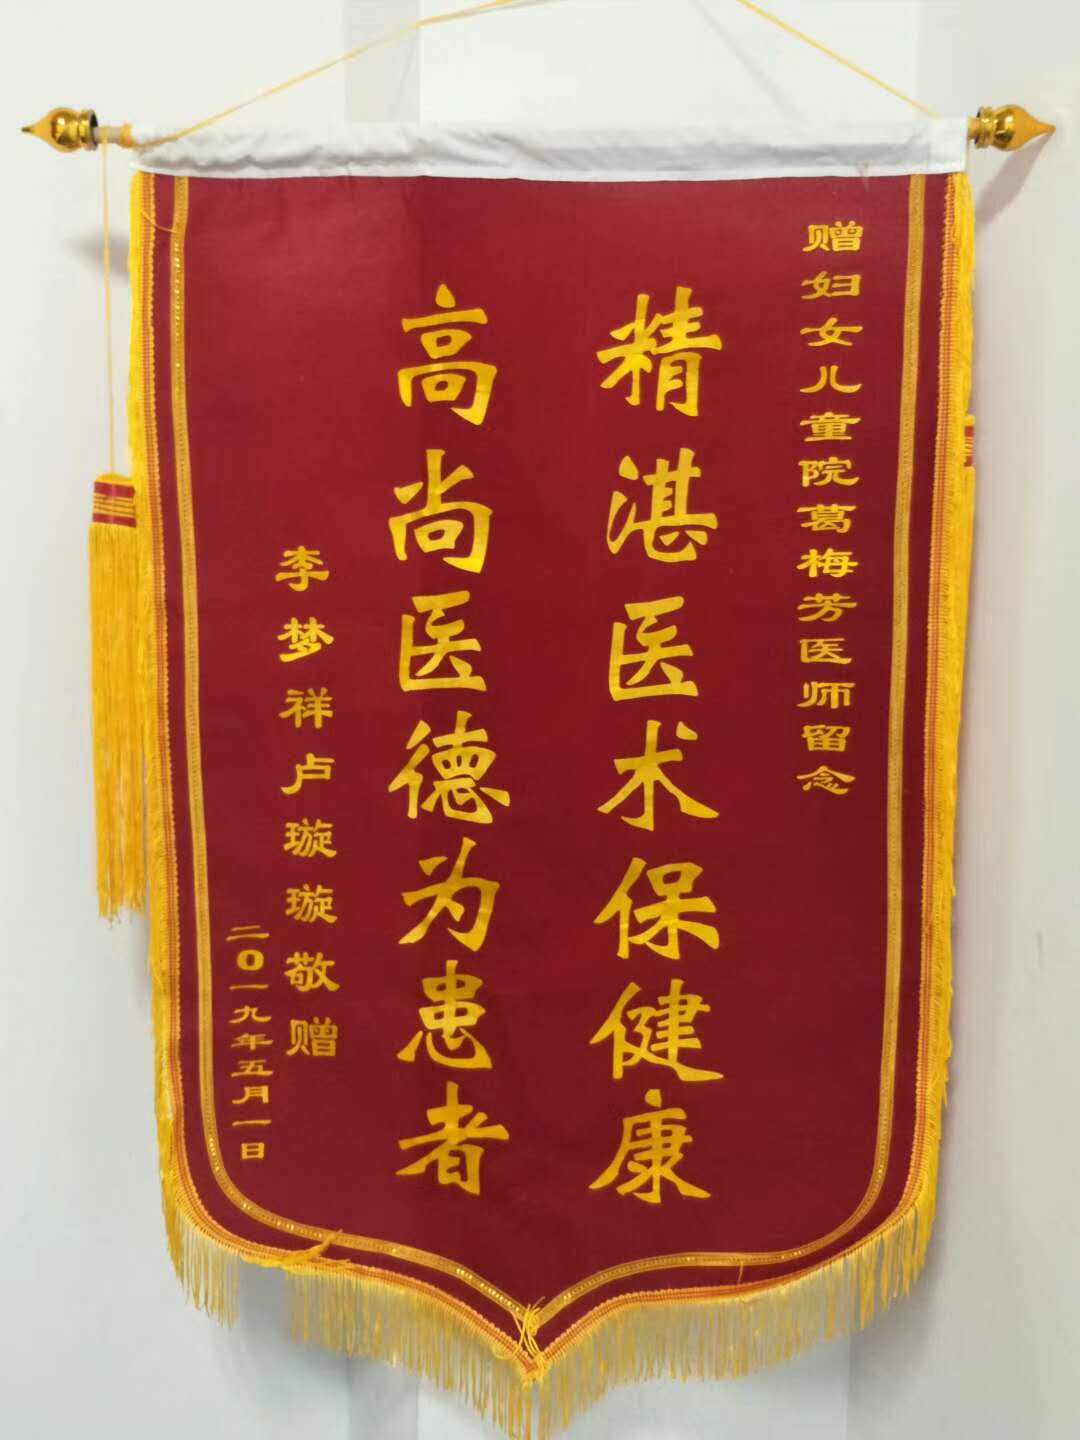 赠妇女儿童院葛梅芳医师留念
精湛医术保健康
高尚医德为患者
李梦祥卢璇璇敬赠
二0一九年五月一日